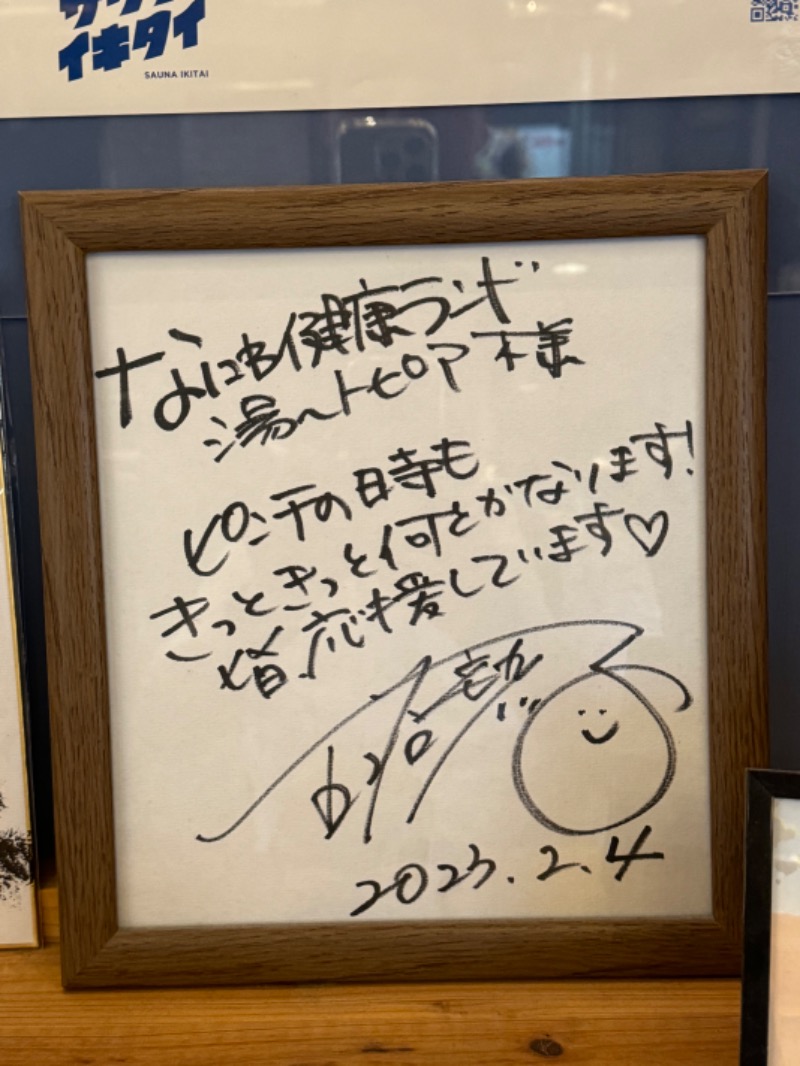 イキタイ
SAUNA IKITAI
なにわ健康ランド
湯〜トピア 様
ピンチの時も
きっときっと何とかなります!
皆応援しています♡
2023.2.4